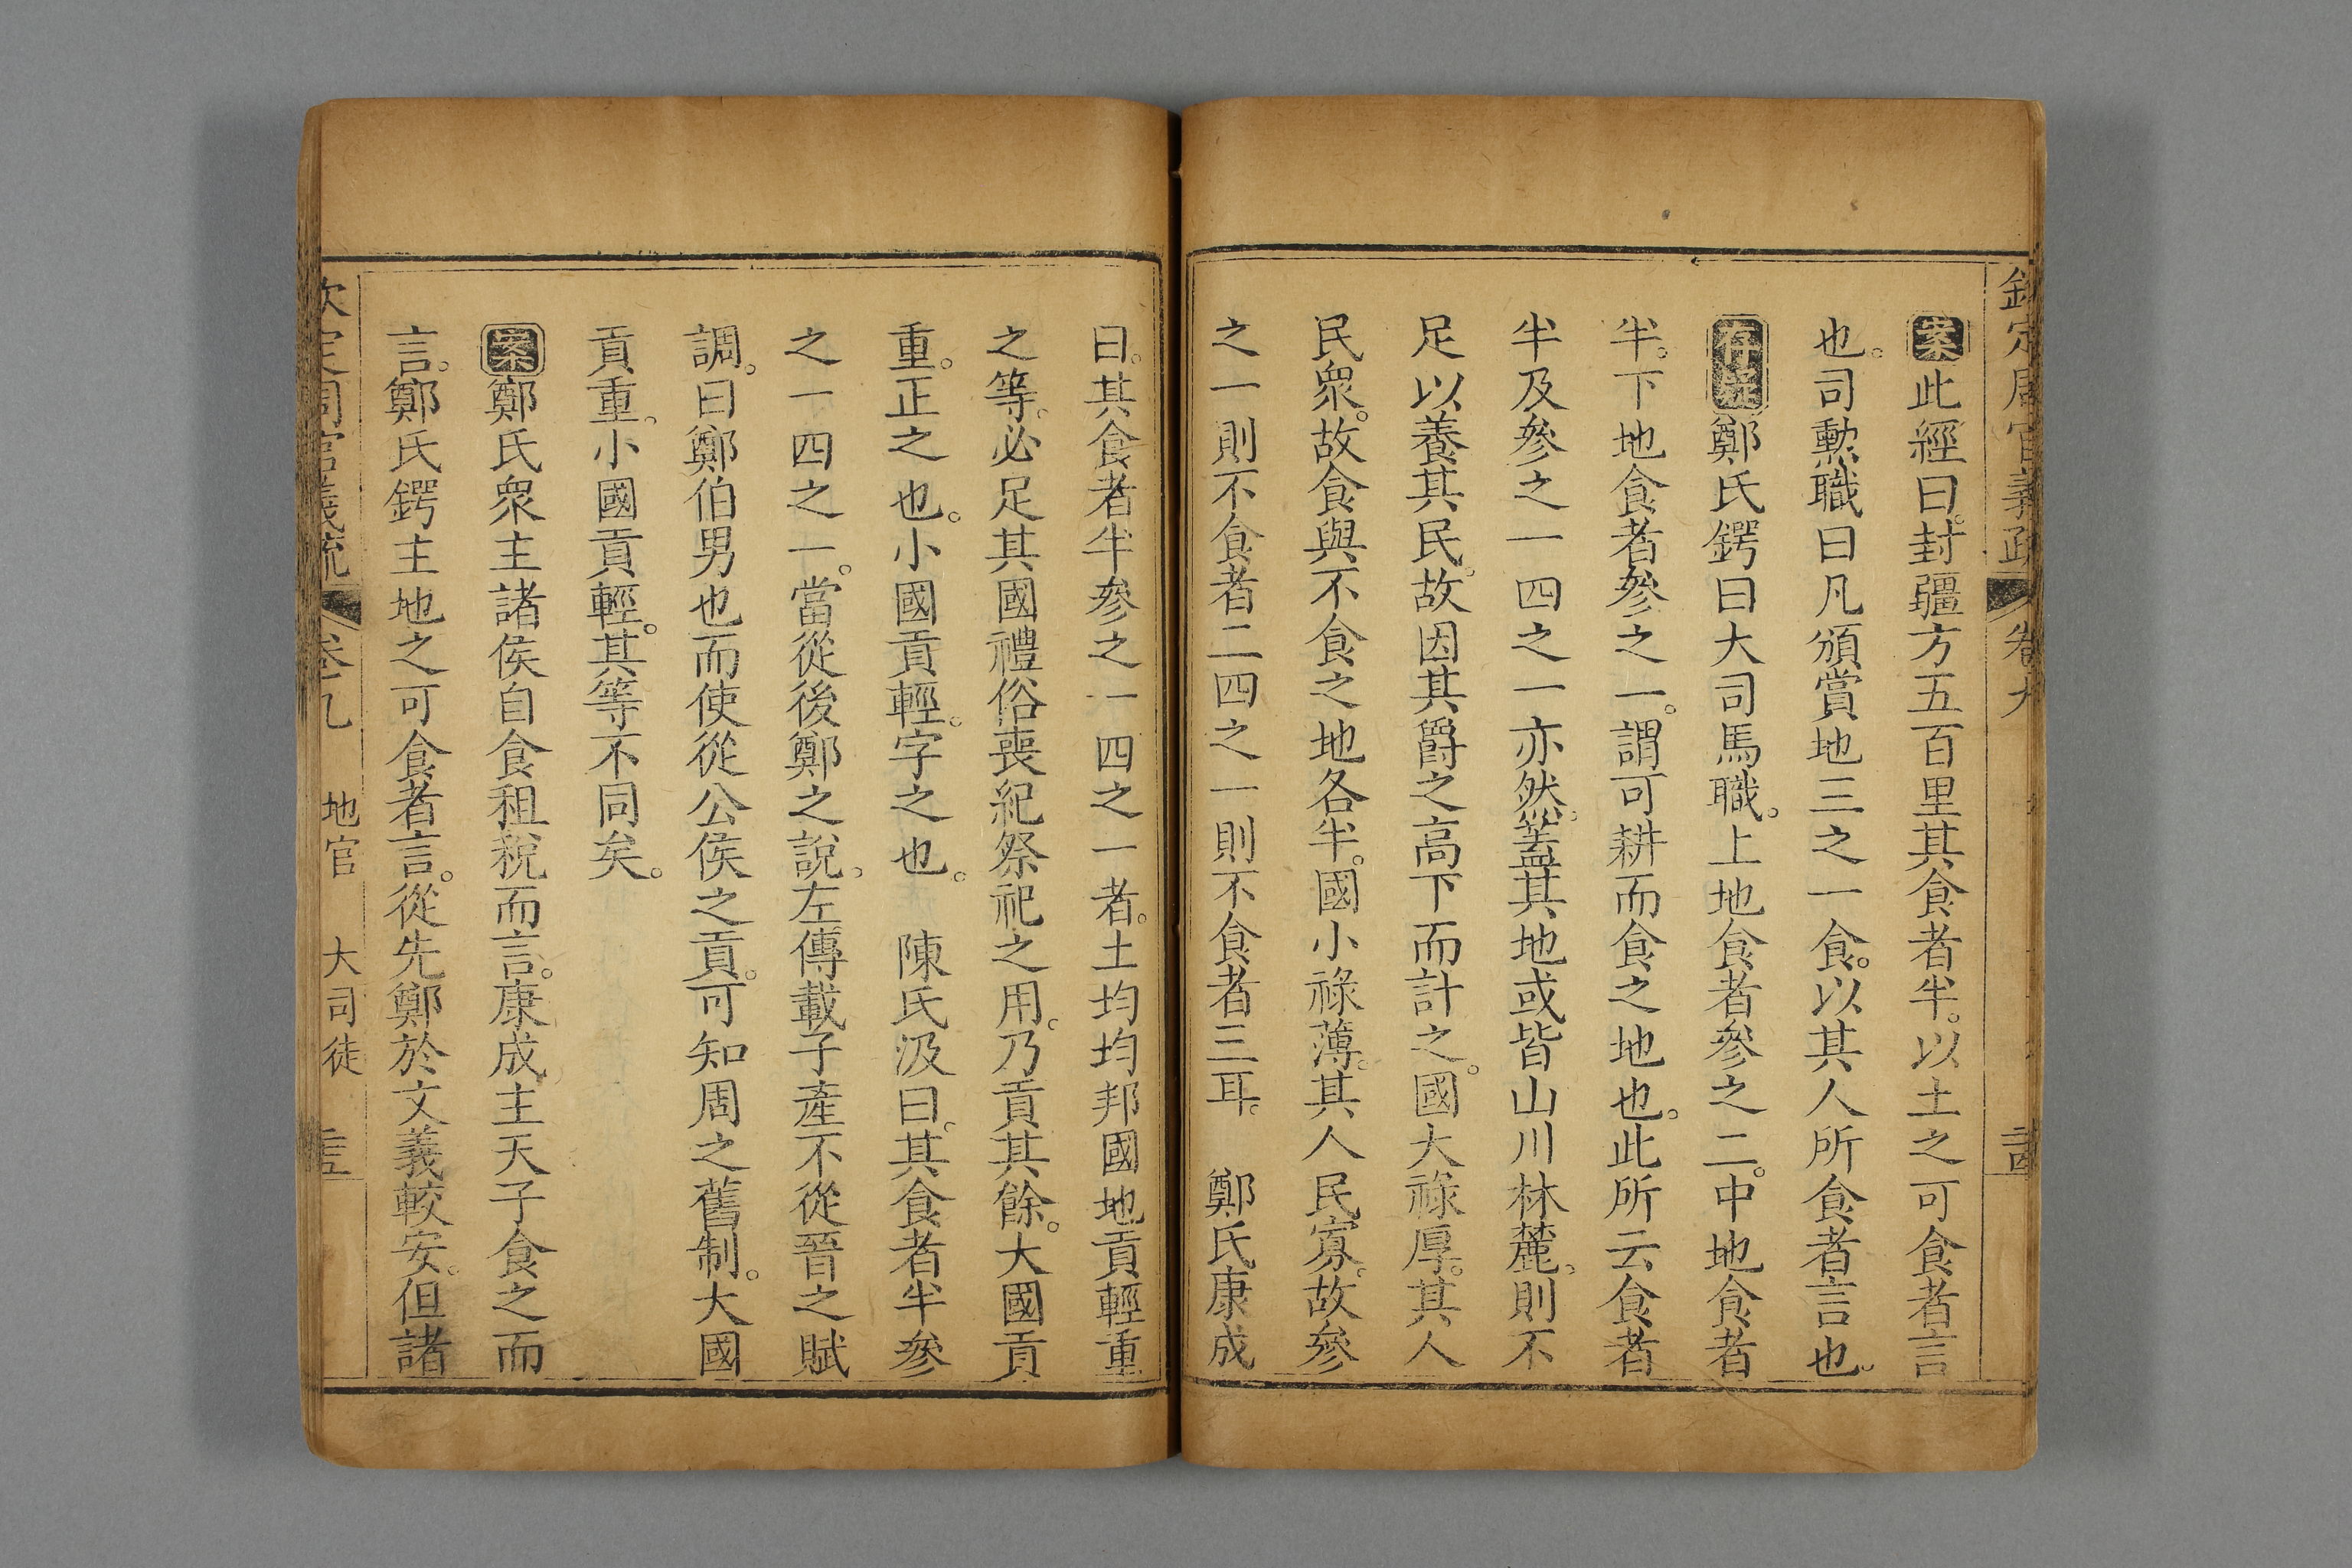 欽定周官義疏 卷九
案此經曰。封疆方五百里其食者半。以土之可食者言
也。司勲職曰凡頒賞地三之一食。以其人所食者言也。
存疑鄭氏鍔曰大司馬職。上地食者參之二。中地食者
半。下地食者參之一。謂可耕而食之地也。此所云食者
半及參之一四之一亦然。葢其地或皆山川林麓。則不
足以養其民。故因其爵之高下而計之。國大祿厚。其人
民衆。故食與不食之地各半。國小祿薄。其人民寡。故參
之一則不食者二四之一則不食者三耳。 鄭氏康成
曰。其食者半參之一四之一者。土均均邦國地貢輕重
之等。必足其國禮俗喪紀祭祀之用。乃貢其餘。大國貢
重。正之也。小國貢輕。字之也。 陳氏汲曰。其食者半參
之一四之一。當從後鄭之說。左傳載子產不從晉之賦
調。曰鄭伯男也而使從公侯之貢。可知周之舊制。大國
貢重。小國貢輕。其等不同矣。
案鄭氏衆主諸侯自食租稅而言。康成主天子食之而
言。鄭氏鍔主地之可食者言。從先鄭於文義較安。但諸
欽定周官義疏 卷九 地官 大司徒